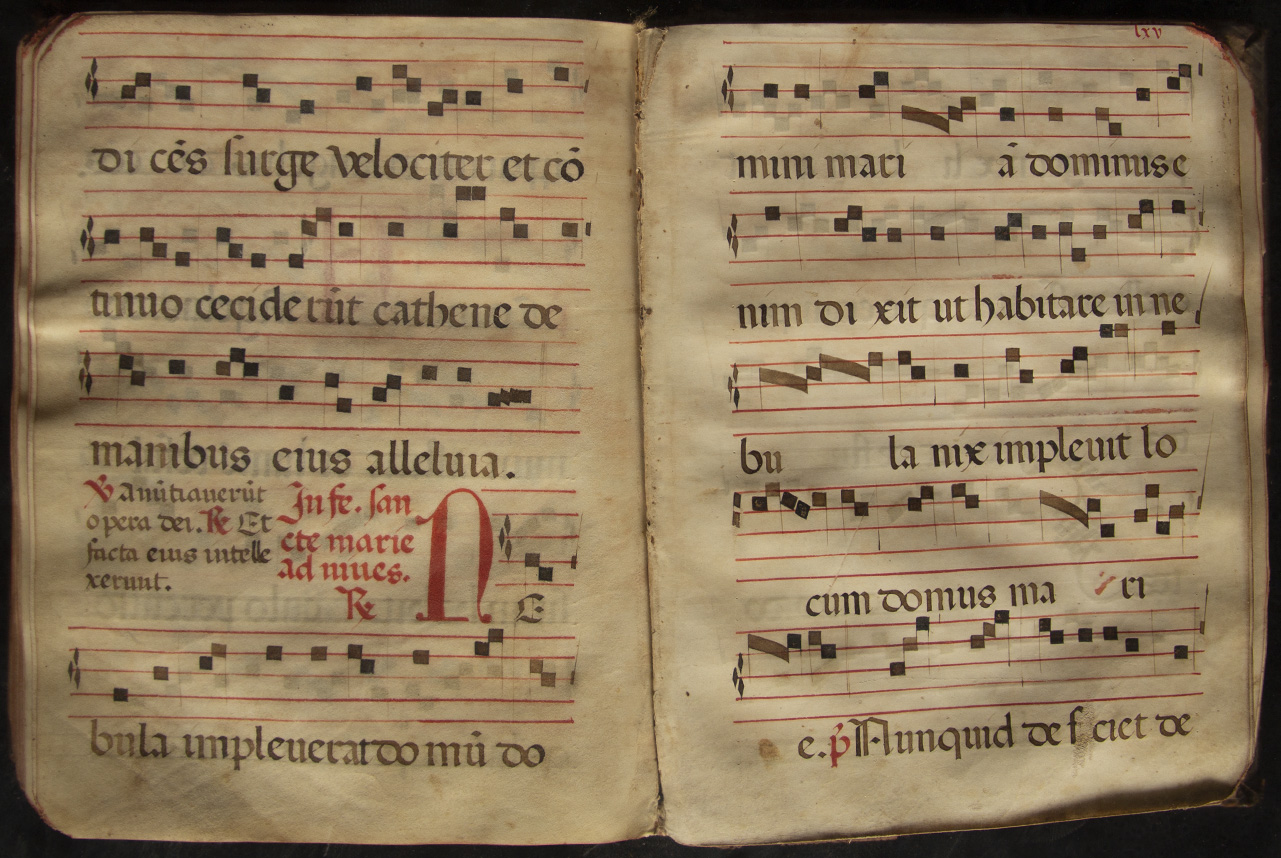 di cēs surge velociter et cō
tinuo ceciderūt cathene de
manibus eius alleluia.
℣ Anūtiauerūt
opera dei. ℟ Et
facta eius intelle
xerunt.
In fe. san
cte marie
ad niues.
℟
NE
bula impleuerat domū do
lxv
mini mari ā dominus e
nim di xit ut habitare in ne
bu la nix impleuit lo
cum domus ma ri
e. p̄ Nunquid de f ciet de